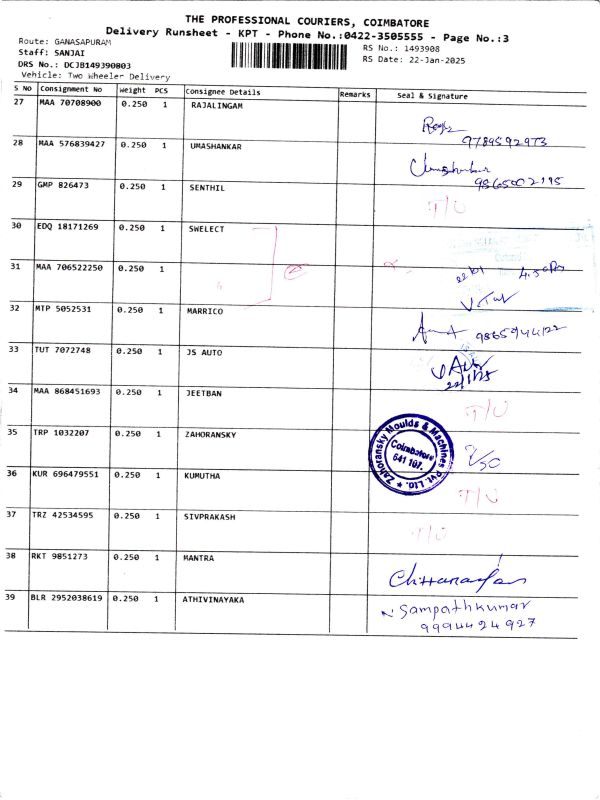 THE PROFESSIONAL COURIERS, COIMBATORE
Delivery Runsheet - KPT - Phone No.:0422-3505555 - Page No.:3
Route: GANASAPURAM
RS No.: 1493908
Staff: SANJAI
RS Date: 22-Jan-2025
DRS No.: DCJB149390803
Vehicle: Two Wheeler Delivery
S No Consignment No Weight PCS Consignee Details Remarks Seal & Signature
27 MAA 70708900 0.250 1 RAJALINGAM
9789592973
28 MAA 576839427 0.250 1 UMASHANKAR
Umashankar
9865002195
29 GMP 826473 0.250 1 SENTHIL T/U
30 EDQ 18171269 0.250 1 SWELECT
31 MAA 706522250 0.250 1
32 MTP 5052531 0.250 1 MARRICO
9865944122
33 TUT 7072748 0.250 1 JS AUTO
22/1/25
34 MAA 868451693 0.250 1 JEETBAN T/U
35 TRP 1032207 0.250 1 ZAHORANSKY
Zahoransky Moulds & Machines Pvt. Ltd. ★
Coimbatore
641 107.
36 KUR 696479551 0.250 1 KUMUTHA T/U
37 TRZ 42534595 0.250 1 SIVPRAKASH T/U
38 RKT 9851273 0.250 1 MANTRA
39 BLR 2952038619 0.250 1 ATHIVINAYAKA
N Sampathkumar
9994424927